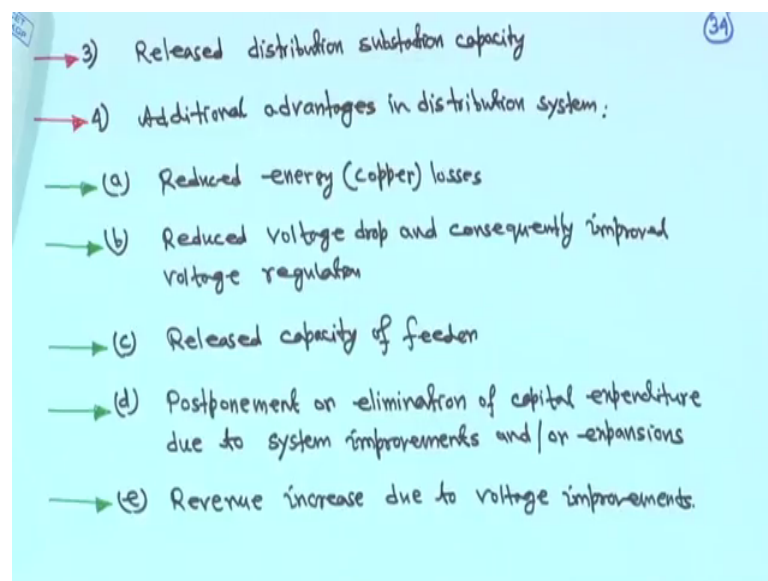 34
3) Released distribution substation capacity
4) Additional advantages in distribution system:
(a) Reduced energy (copper) losses
(b) Reduced voltage drop and consequently improved
voltage regulation
(c) Released capacity of feeder
(d) Postponement or elimination of capital expenditure
due to system improvements and/or expansions
(e) Revenue increase due to voltage improvements.